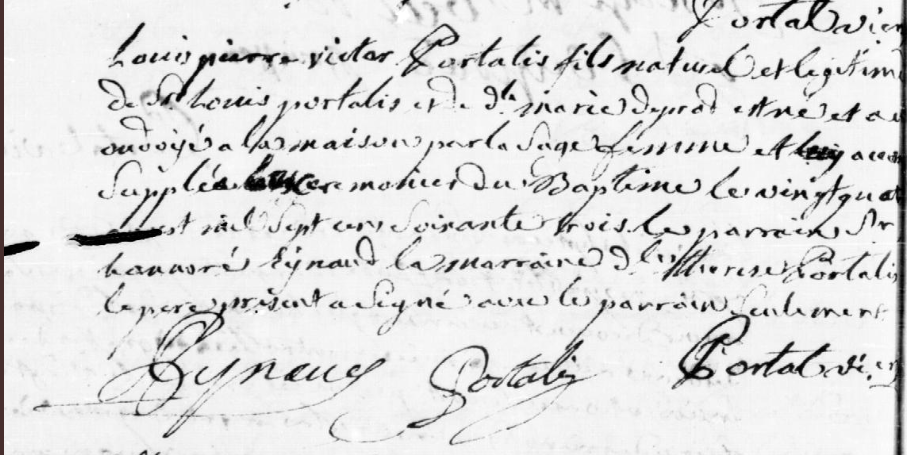 Portal vic
Louis pierre victor Portalis fils naturel et legitim
de Sr. Louis portalis et de dlle marie Eyraud est né et a e
ondoyé a la maison par la Sage femme et luy avons
Supplée les ceremonies du Baptême le vingt quat
mil Sept cens Soixante trois. le parrain Sr
honnoré Eynaud la marraine dlle therese Portalis
le pere présent a Signé avec le parrain Seulement
Eynaud Portalis Portal vic